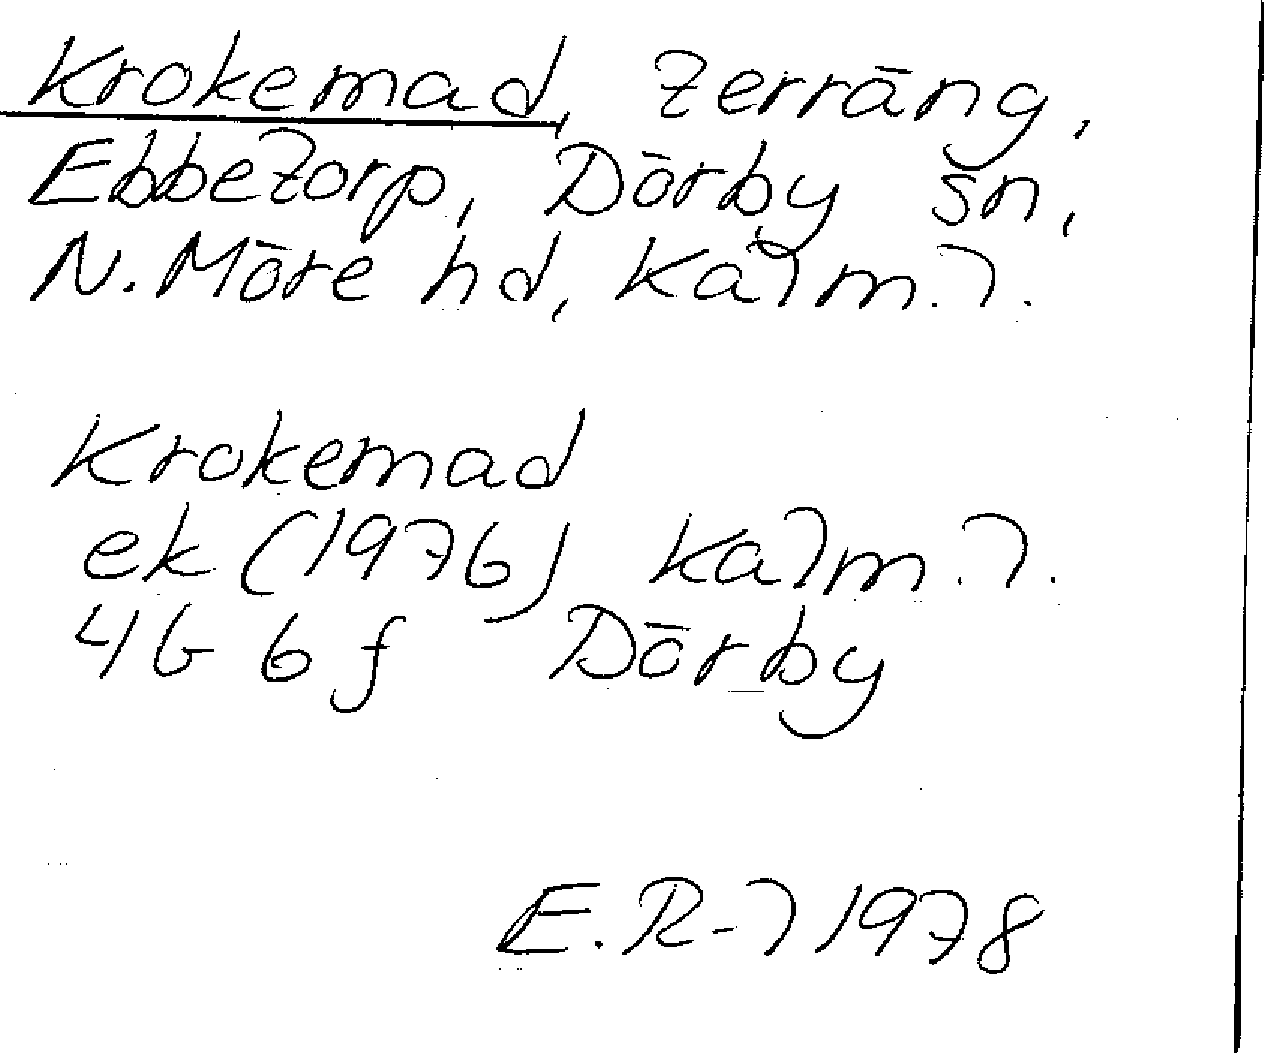 Krokemad, terräng,
Ebbetorp, Dörby sn,
N. Möre hd, Kalm. l.
Krokemad
ek (1976) Kalm. l.
4G 6f Dörby
E. R-l 1978